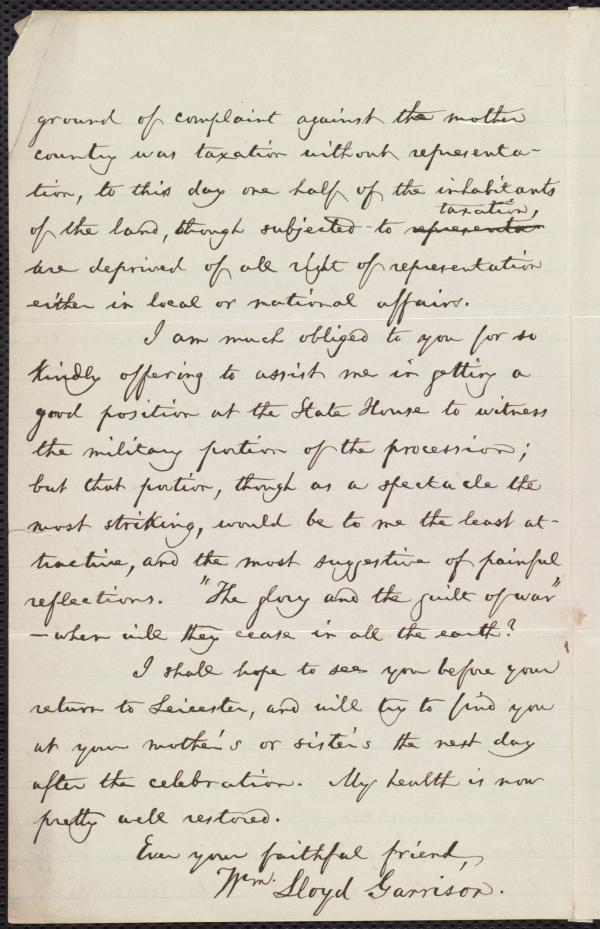 ground of complaint against the mother
country was taxation without representa-
tion, to this day one half of the inhabitants
taxation,
of the land, though subjected to representa
are deprived of all right of representation
either in local or national affairs.
I am much obliged to you for so
kindly offering to assist me in getting a
good position at the State House to witness
the military portion of the procession;
but that portion, though as a spectacle the
most striking, would be to me the least at-
tractive, and the most suggestive of painful
reflections. "The glory and the guilt of war"
—when will they cease in all the earth?
I shall hope to see you before your
return to Leicester, and will try to find you
at your mother's or sister's the next day
after the celebration. My health is now
pretty well restored.
Ever your faithful friend,
Wm. Lloyd Garrison.